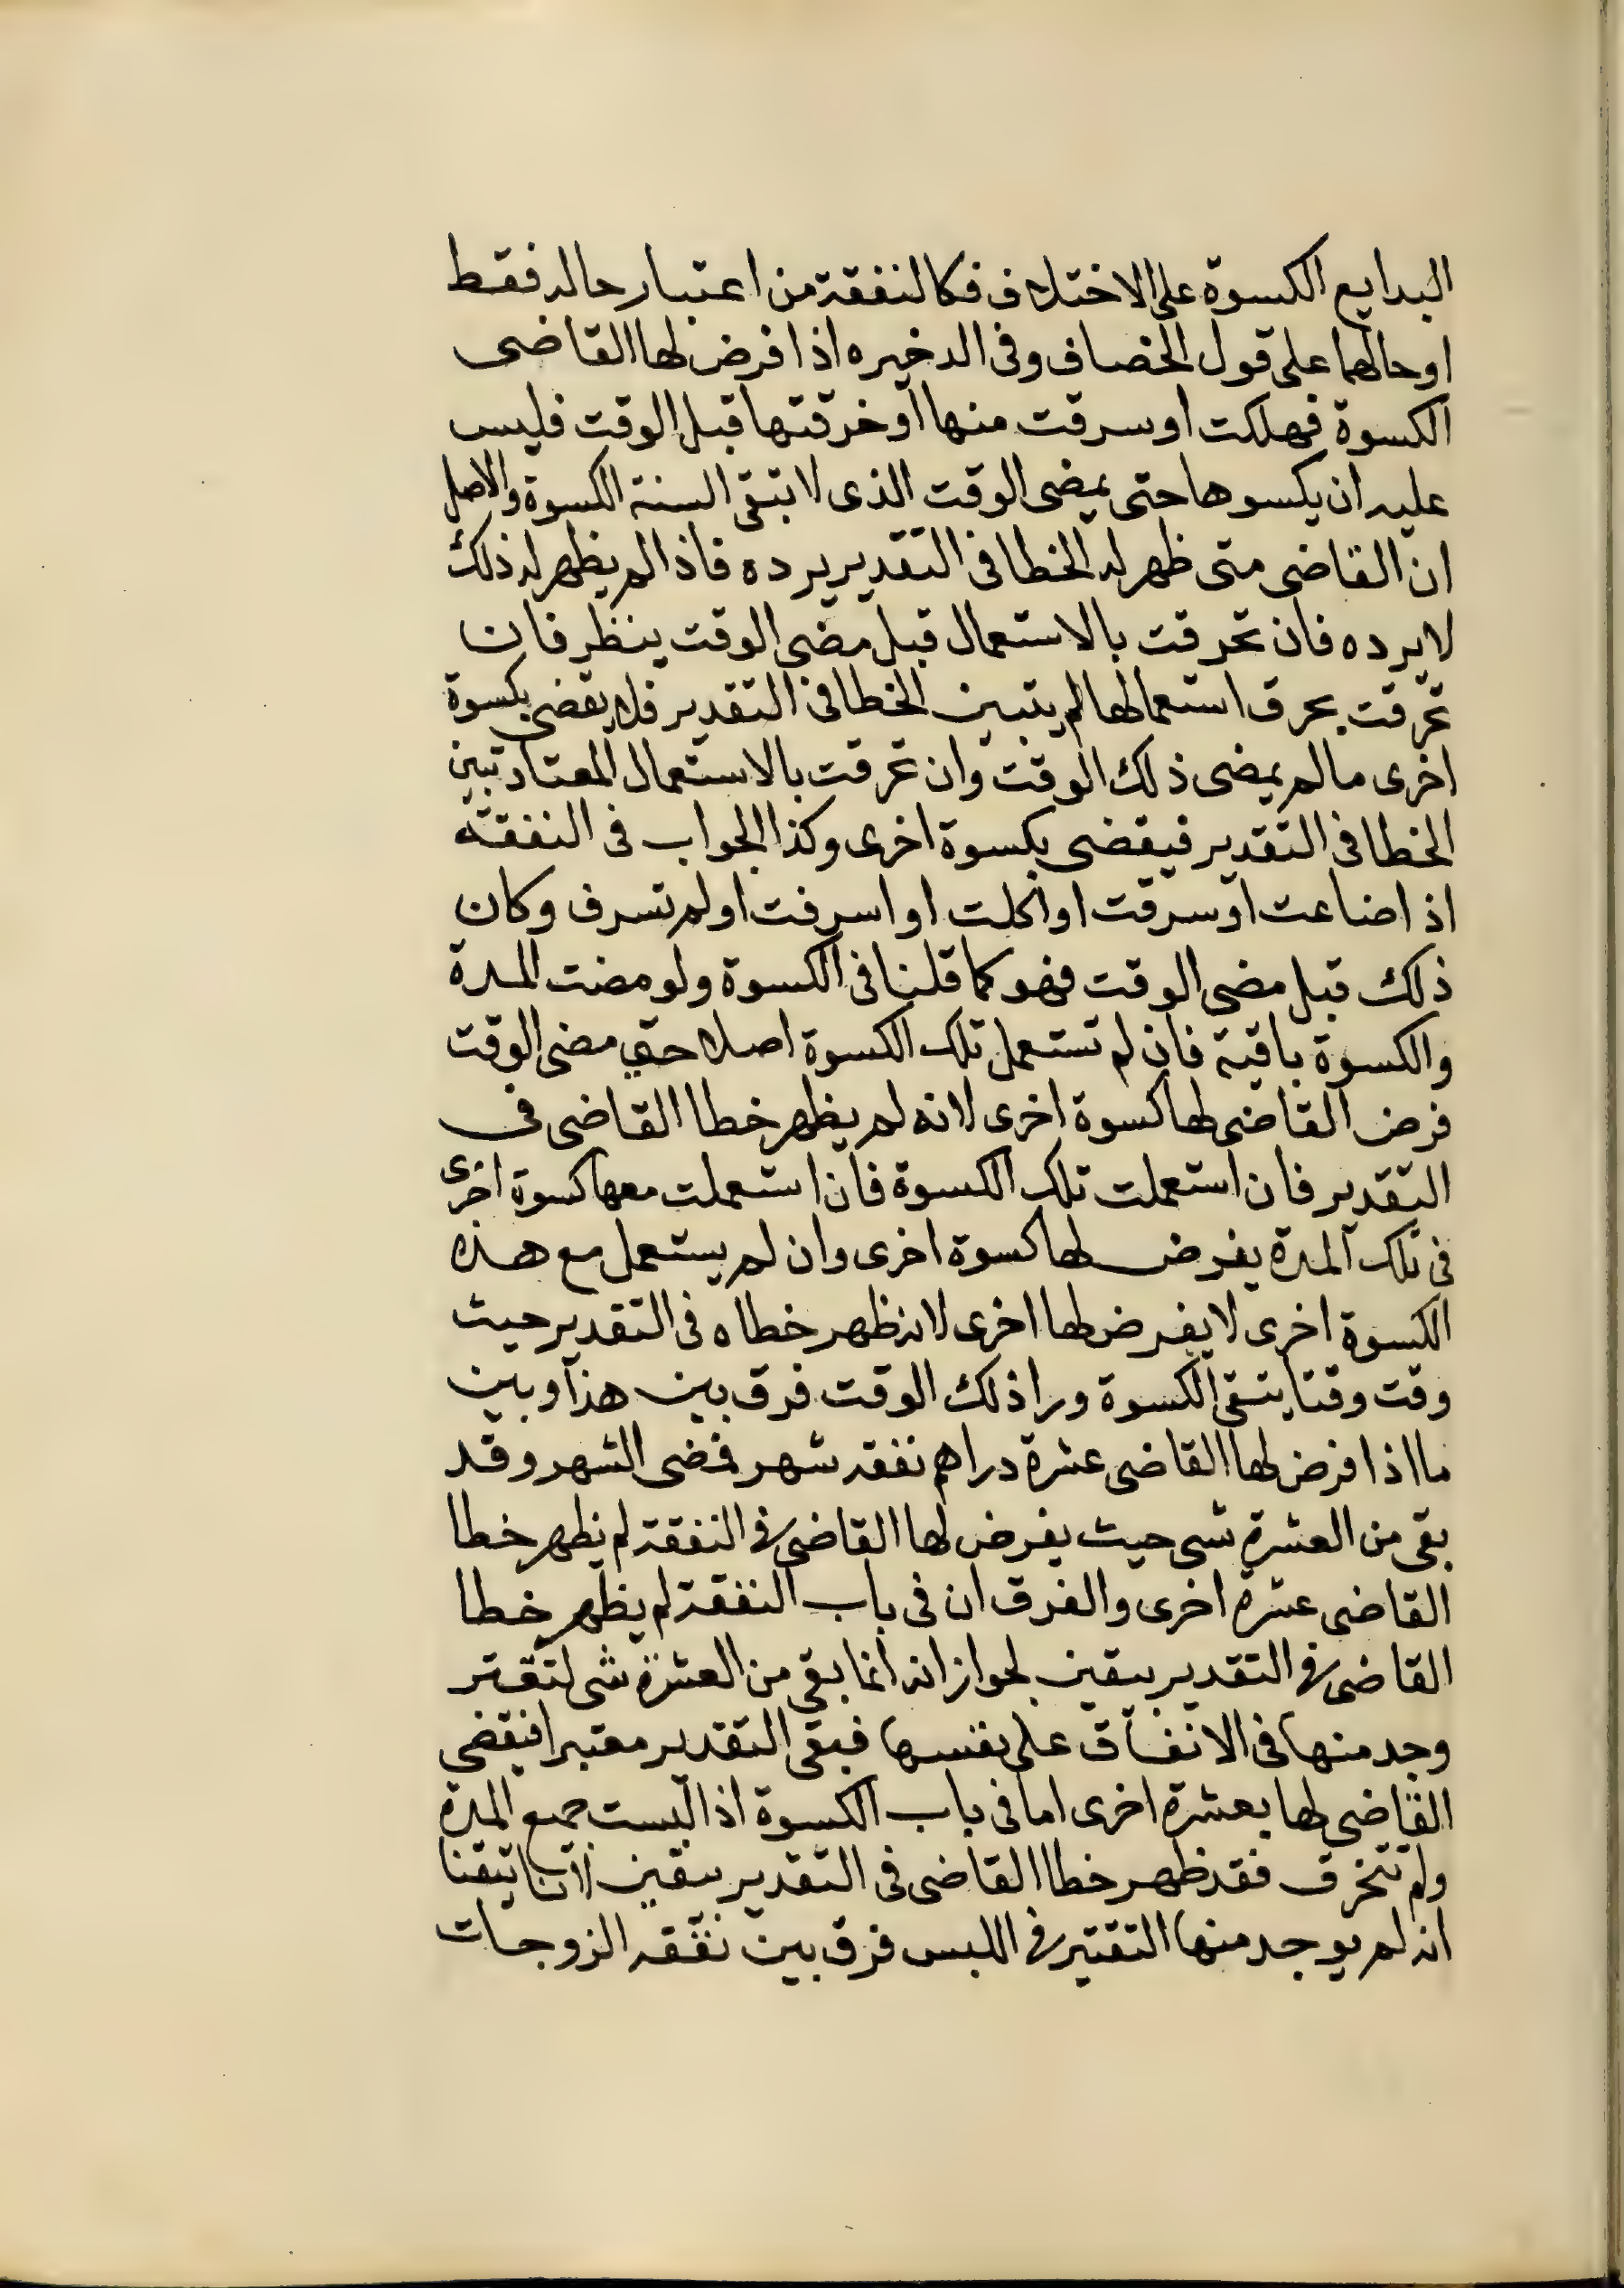 البدايع الكسوة على الاختلاف فكالنفقة من اعتبار حاله فقط
او حالهما على قول الخصاف وفى الدخيره اذا فرض لها القاضى
الكسوة فهلكت او سرقت منها او خرقتها قبل الوقت فليس
عليه ان يكسوها حتى يمضى الوقت الذى لا تبقى السنة الكسوة والاصل
ان القاضى متى ظهر له الخطا فى التقدير يرده فاذا لم يظهر له ذلك
لا يرده فان تخرقت بالاستعمال قبل مضى الوقت ينظر فان
تخرقت بخرق استعمالها لم يتبين الخطا فى التقدير فلا يقضى بكسوة
اخرى ما لم يمضى ذلك الوقت وان تخرقت بالاستعمال المعتاد تبين
الخطا فى التقدير فيقضى بكسوة اخرى وكذا الجواب فى النفقة
اذا ضاعت او سرقت او اكلت او اسرفت او لم تسرف وكان
ذلك قبل مضى الوقت فهو كما قلنا فى الكسوة ولو مضت المدة
والكسوة باقية فان لم تستعمل تلك الكسوة اصلا حتى مضى الوقت
فرض القاضى لها كسوة اخرى لانه لم يظهر خطا القاضى فى
التقدير فان استعملت تلك الكسوة فان استعملت معها كسوة اخرى
فى تلك المدة يفرض لها كسوة اخرى وان لم يستعمل مع هذه
الكسوة اخرى لا يفرض لها اخرى لانه ظهر خطاه فى التقدير حيث
وقت وقتا يتبقى الكسوة ورا ذلك الوقت فرق بين هذا وبين
ما اذا فرض لها القاضى عشرة دراهم نفقه شهر فمضى الشهر وقد
بقى من العشرة شى حيث يفرض لها القاضى فى النفقة لم يظهر خطا
القاضى عشرة اخرى والفرق ان فى باب النفقة لم يظهر خطا
القاضى فى التقدير بيقين لجواز انه انما بقى من العشرة شى لتقتر
وجد منها فى الانفاق على نفسها فبقى التقدير معتبرا فيقضى
القاضى لها بعشرة اخرى اما فى باب الكسوة اذا لبست جميع المدة
ولم تتخرق فقد ظهر خطا القاضى فى التقدير بيقين لاننا تيقنا
انه لم يوجد منها التقتير فى اللبس فرق بين نفقه الزوجات